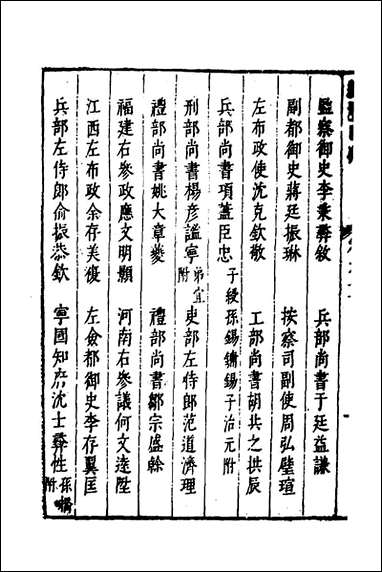 監察御史李秉彝敘 兵部尚書于廷益謙
副都御史蔣廷振琳 按察司副使周弘璧瑄
左布政使沈克欽敬 工部尚書胡共之拱辰
兵部尚書項藎臣忠 子綬孫錫鏞錫子治元附
刑部尚書楊彥謐寧 弟宜附 吏部左侍郎范道濟理
禮部尚書姚大章夔 禮部尚書鄒宗盛榦
福建右參政應文明顥 河南右參議何文逵陞
江西左布政余存美復 左僉都御史李存翼匡
兵部左侍郎俞振恭欽 寧國知府沈士彝性 孫橋附